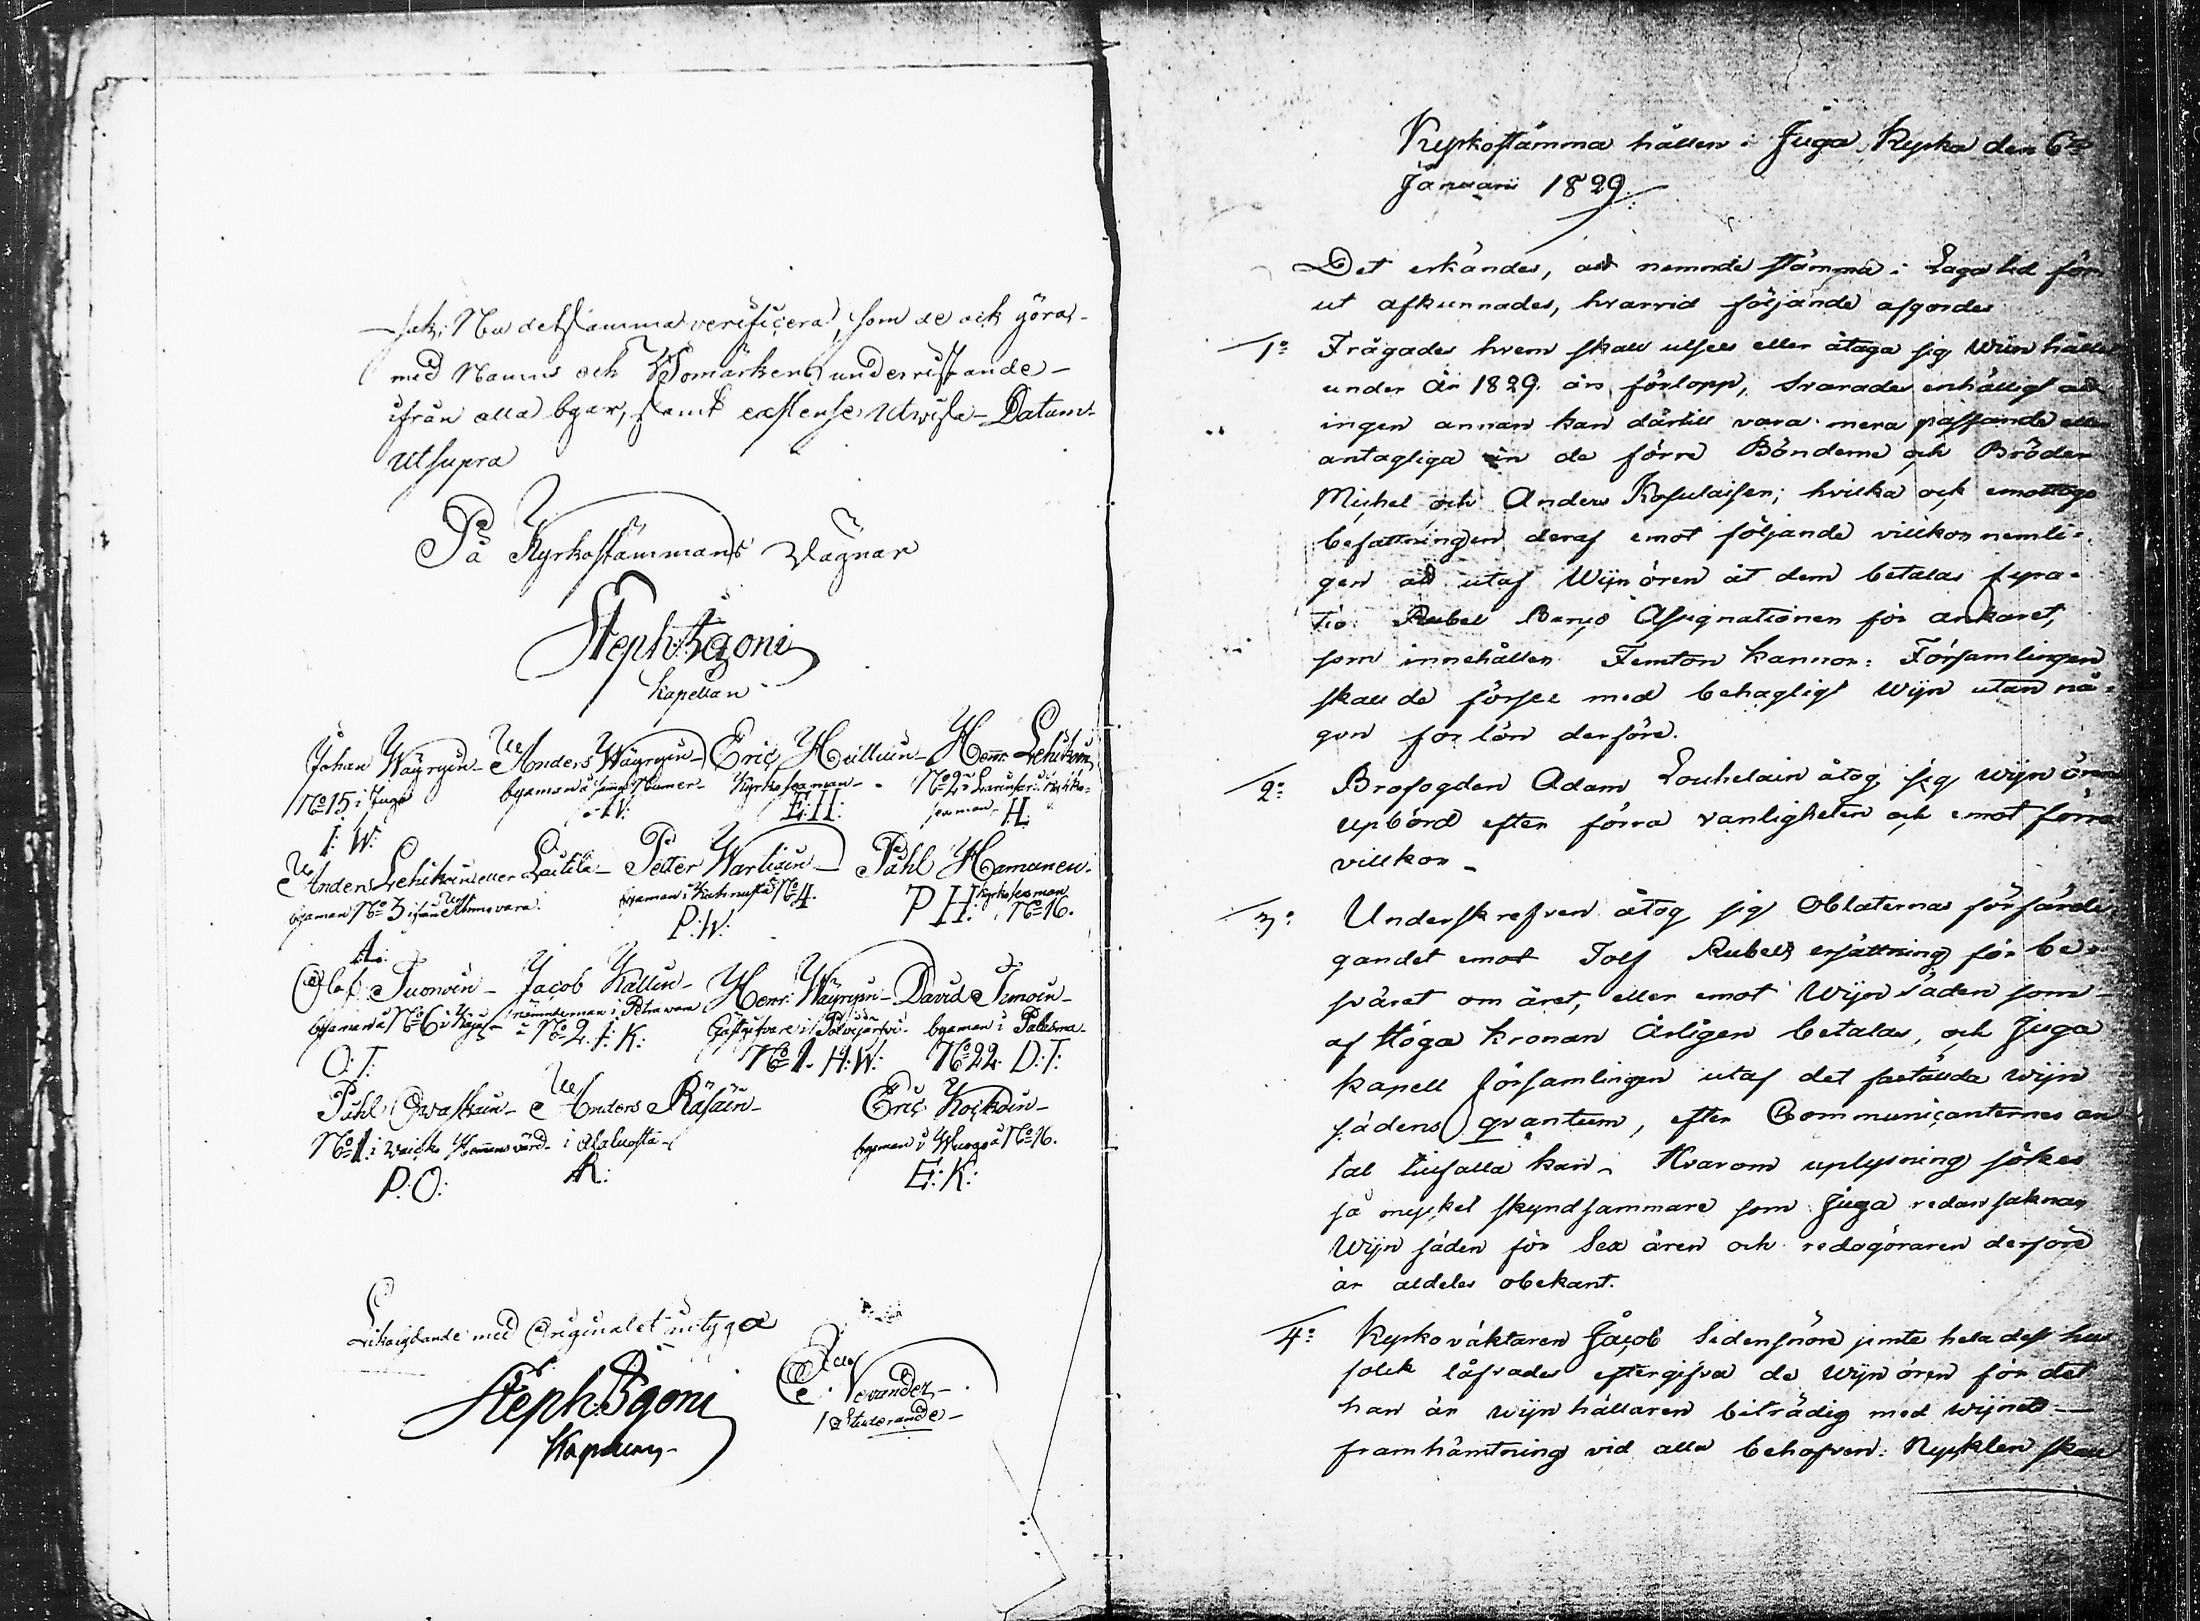 -sak: Nu detsamma verificera, som de ock göra-
med Namns och Bomärkens underristande-
ifrån alla byar, samt existense utwisa- Datum-
ut supra
På Kyrkostämmans Vägnar
Steph: Bgoni
Kapellan
Johan Wäyrynin- Anders Wäyrynin- Eric Hilluin- Henr: Lehikoin
No 15 i Juga byaman å samma Numer- Kyrkosexman- No 2
I: W: A: W: E: H: sexman- H:
Anders Lehikoin eller Laitila- Petter Wartiain- Påhl Hamanen-
byaman No 3 ifrån byaman i No 4. Kyrkosexman
A: P: W: P H: No 16.
Olof Tuonoin- Jacob Kallin- Henr: Wäyrynin- David Timoin-
byaman å No 6 i nämndeman i Petrovara Gästgifvare i byaman i Palasma-
O: T: å No 2. I: K: No 1. H: W: No 22. D: T:
Påhl Ovaskain- Anders Räsäin- Eric Kockoin-
No 1 i Hemmansvärd- i Alaluosta- byaman i å No 16.
P: O: A R: E: K:
Likalydande med Originalet intyga
Steph: Bgoni
Kapellan-
C: Nevander-
Studerande-
Kyrkostämma hållen i Juga Kyrka den 6te
Januari 1829.
Det erkändes, att nemnde stämma i Laga tid för
ut afkunnades, hvarvid följande afgordes
1o Frågades hvem skall utses eller åtaga sig Wiin hållet
under År 1829 års förlopp, Svarades enhälligt att
ingen annan kan därtill vara mera passande eller
antagliga än de förre Bönderne och Bröder
Michel och Anders Kosulaisen; hvilka ock emottogo
befattningen deraf emot följande villkor nemli-
gen att utaf Wijn ören åt dem betalas fyra-
tio Rubel Banco Assignationer för ankaret,
som innehåller Femton kannor: Församlingen
skall de förse med behagligt Wijn utan nå-
gon för lön derföre.
2o Brofogden Adam Louhelain åtog sig wijn örens
upbörd efter förra vanligheten och emot förra
villkor-
3o Underskrefven åtog sig Oblaternas förfärdi-
gandet emot Tolf Rubels ersättning för be-
sväret om året, eller emot Wijn säden som-
af Höga Kronan Årligen betalas, och Juga
kapell församlingen utaf det fastälda Wijn
sädens quantum, efter Communicanternes an
tal tillfalla kan- Hvarom uplysning sökes
så myket skyndsammare som Juga redan saknar
Wijn säden för Sex åren och redogöraren derföre
är aldeles obekant.
4o Kyrkoväktaren Jacob Sidensnöre jemte hela dess hus
folk låfvades eftergifva de Wijn ören för det
han är wijn hållaren biträdig med wijnets-
framhämtning vid alla behofven. Nycklen skall